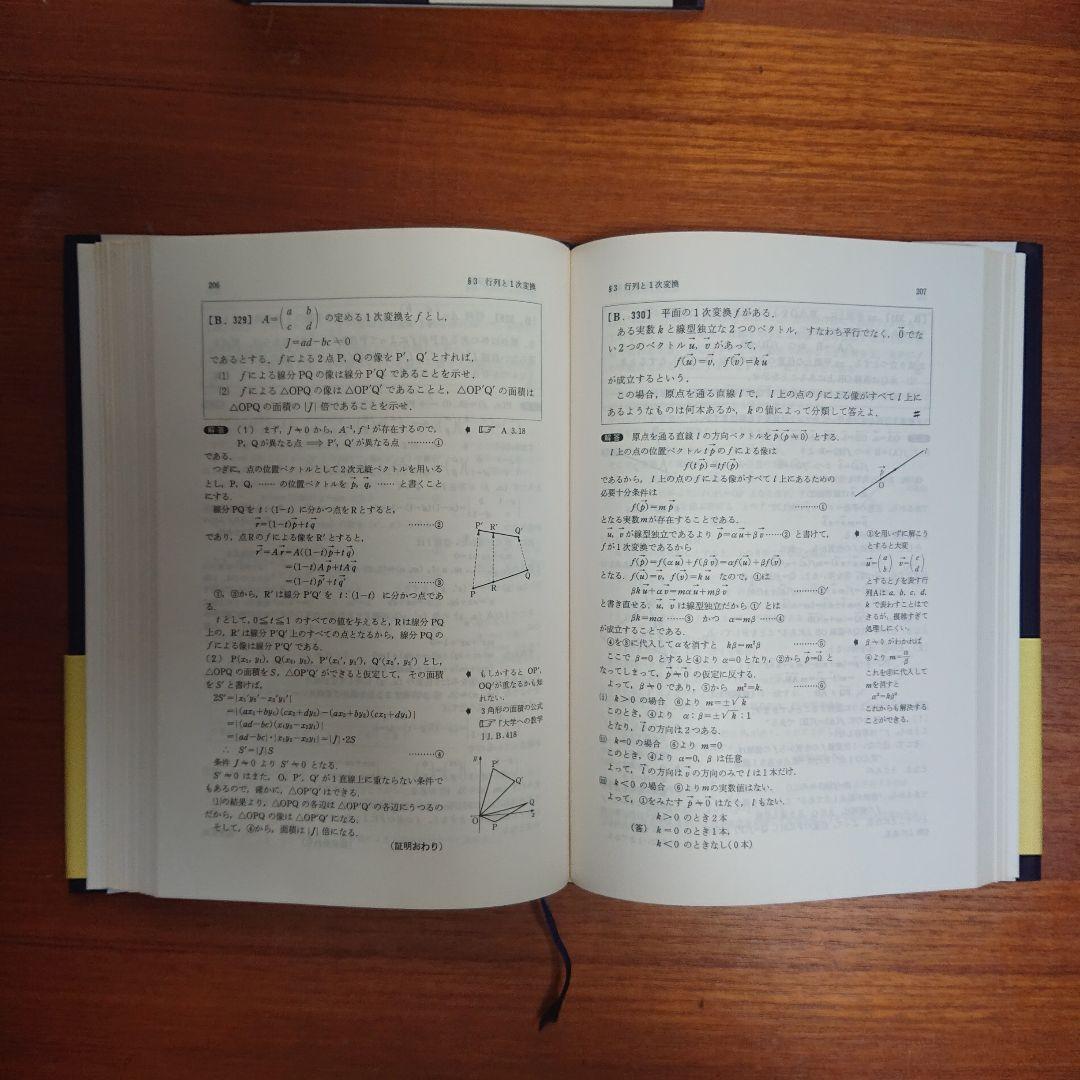 206
§3 行列と1次変換
[B. 329] A=(a b c d) の定める1次変換を f とし,
J=ad-bc≠0
であるとする. f による2点 P, Q の像を P′, Q′ とすれば,
(1) f による線分 PQ の像は線分 P′Q′ であることを示せ.
(2) f による △OPQ の像は △OP′Q′ であることと, △OP′Q′ の面積は
△OPQ の面積の |J| 倍であることを示せ.
解答 (1) まず, J≠0 から, A⁻¹, f⁻¹ が存在するので,
P, Qが異なる点 ⟹ P′, Q′が異なる点 ………①
である.
☞ A 3.18
つぎに, 点の位置ベクトルとして2次元縦ベクトルを用いる
とし, P, Q, …… の位置ベクトルを p⃗, q⃗, …… と書くこと
にする.
線分PQを t:(1−t) に分かつ点をRとすると,
r⃗=(1−t)p⃗+tq⃗ ………②
であり, 点Rの f による像を R′ とすると,
r⃗′=Ar⃗=A((1−t)p⃗+tq⃗)
=(1−t)Ap⃗+tAq⃗
=(1−t)p⃗′+tq⃗′ ………③
P′ R′ Q′
P R Q
②, ③から, R′ は線分 P′Q′ を t:(1−t) に分かつ点であ
る.
t として, 0≦t≦1 のすべての値を与えると, Rは線分 PQ
上の, R′ は線分 P′Q′ 上のすべての点となるから, 線分 PQ の
f による像は線分 P′Q′ である.
(2) P(x₁, y₁), Q(x₂, y₂), P′(x₁′, y₁′), Q′(x₂′, y₂′) とし,
△OPQ の面積を S, △OP′Q′ ができると仮定して, その面積
を S′ と書けば,
2S′=|x₁′y₂′−x₂′y₁′|
=|(ax₁+by₁)(cx₂+dy₂)−(ax₂+by₂)(cx₁+dy₁)|
=|(ad−bc)(x₁y₂−x₂y₁)|
=|ad−bc|·|x₁y₂−x₂y₁|=|J|·2S
∴ S′=|J|S ………④
もしかすると OP′,
OQ′が重なるかも知
れない.
3角形の面積の公式
☞『大学への数学
Ⅰ』I. B.418
条件 J≠0 より S′≠0 となる.
S′≠0 はまた, O, P′, Q′ が1直線上に重ならない条件で
もあるので, 確かに, △OP′Q′ はできる.
(1)の結果より, △OPQ の各辺は △OP′Q′ の各辺にうつるの
だから, △OPQ の像は △OP′Q′ になる.
そして, ④から, 面積は |J| 倍になる.
(証明おわり)
y P′ Q′ Q O P x
§3 行列と1次変換
207
[B. 330] 平面の1次変換 f がある.
ある実数 k と線型独立な2つのベクトル, すなわち平行でなく, 0⃗ でな
い2つのベクトル u⃗, v⃗ があって,
f(u⃗)=v⃗, f(v⃗)=ku⃗
が成立するという.
この場合, 原点を通る直線 l で, l 上の点の f による像がすべて l 上に
あるようなものは何本あるか, k の値によって分類して答えよ. #
解答 原点を通る直線 l の方向ベクトルを p⃗(p⃗≠0⃗) とする.
l 上の点の位置ベクトル tp⃗ の f による像は
f(tp⃗)=tf(p⃗)
であるから, l 上の点の f による像がすべて l 上にあるための
必要十分条件は
f(p⃗)=mp⃗ ………①
となる実数 m が存在することである.
l p⃗ O
u⃗, v⃗ が線型独立であるより p⃗=αu⃗+βv⃗ ……② と書けて,
f が1次変換であるから
f(p⃗)=f(αu⃗+βv⃗)=αf(u⃗)+βf(v⃗)
となる. f(u⃗)=v⃗, f(v⃗)=ku⃗ なので, ①は
βku⃗+αv⃗=mαu⃗+mβv⃗ ………①′
と書き直せる. u⃗, v⃗ は線型独立だから ①′ とは
βk=mα ……③ かつ α=mβ ……④
が成立することである.
②を用いずに解こう
とすると大変
u⃗=(a b) v⃗=(c d)
とすると f を表す行
列Aは a, b, c, d,
k で表わすことはで
きるが, 複雑すぎて
処理しにくい.
④を③に代入して α を消すと kβ=m²β ………⑤
ここで β=0 とすると④より α=0となり, ②から p⃗=0⃗ と
なってしまって, p⃗≠0⃗ の仮定に反する.
よって, β≠0 であり, ⑤から m²=k. ………⑥
β≠0 がわかれば
④より m=α/β
これを③に代入して
m を消すと
α²=kβ²
これからも解決する
ことができる.
(i) k>0 の場合 ⑥より m=±√k
このとき, ④より α:β=±√k:1
となり, l の方向は2つある.
(ii) k=0 の場合 ⑥より m=0
このとき, ④より α=0, β は任意
よって, l の方向は v⃗ の方向のみで l は1本だけ.
(iii) k<0 の場合 ⑥より m の実数値はない.
よって, ①をみたす p⃗≠0⃗ はなく, l もない.
k>0 のとき2本
(答) k=0 のとき1本,
k<0 のときなし(0本)